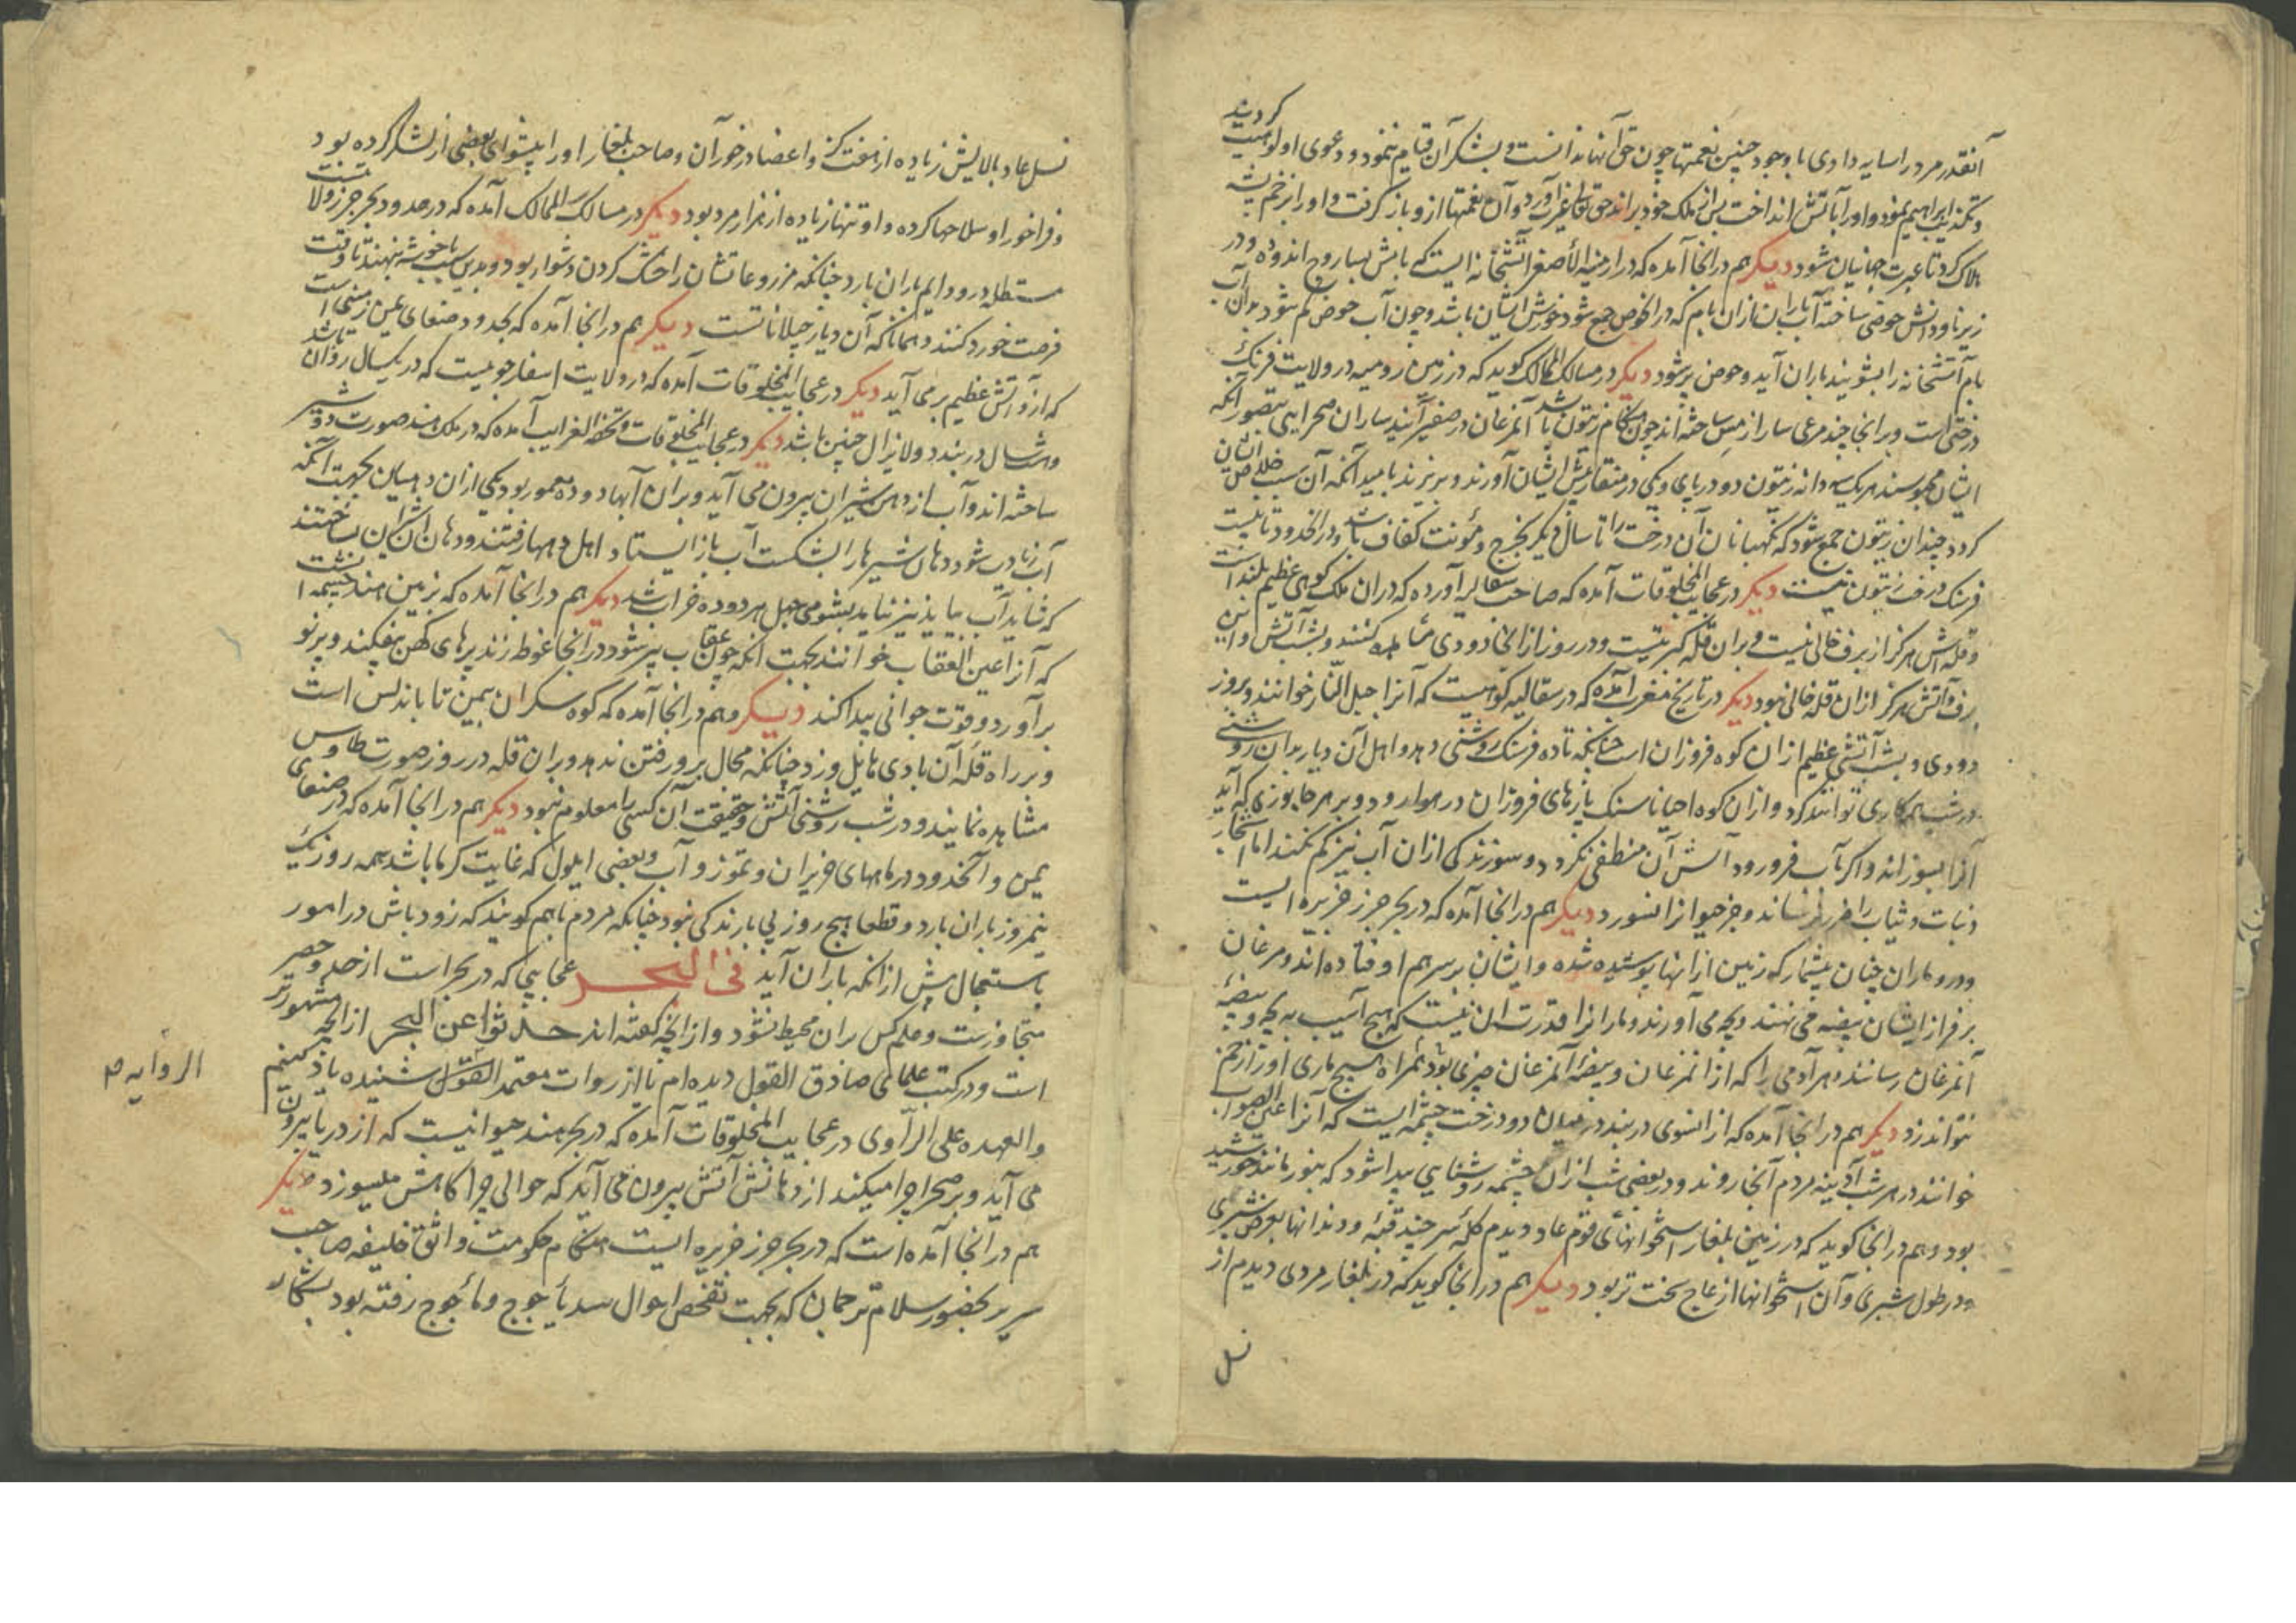 آنقدر مر درا سایه دادی با وجود چنین نعمتها چون حق آنها ندانست و بشکر آن قیام ننمود و دعوی اولوهیت کردید
و تکذیب ابراهیم نمود و اورا بآتش انداخت پس از ملک خود براند حق تعالی آورد و آن نعمتها ازو باز گرفت و اورا بزخم پشه
هلاک کرد تا عبرت جهانیان شود دیگر هم در انجا آمده که در ارمنیه الأصغر آتشخانه ایست که بامش بساروج اندوده و در
زیر ناودانش حوضی ساخته آب باران ازان بام که در انحوض جمع شود خورش ایشان باشد و چون آب حوض کم شود بدان آب
بام آتشخانه را بشویند باران آید و حوض پر شود دیگر در مسالک الممالک گوید که در زمین رومیه در ولایت فرنگ
درختی است و بر انجا چند مرغی سار از مس ساخته اند چون هنگام زیتون باشد آنمرغان در صفیر آیند ساران صحرایی بتصور آنکه
ایشان محبوسند هر یک سه دانه زیتون دو در پای و یکی در منقار پیش ایشان آورند و بریزند بامید آنکه آن سبب خلاص ایشان
کردد چندان زیتون جمع شود که نگهبانان آن درخت را تا سال دیگر بخرج و مؤنت کفاف باشد و در انحدود تا بیست
فرسنگ درخت زیتون نیست دیگر در عجایب المخلوقات آمده که صاحب سقالیه آورده که دران ملک کوهی عظیم بلند است
و قله اش هرگز از برف خالی نیست و بران قله کبریتیست و در روز از انجا دودی مشاهده کنند و بشب آتش و این
برف و آتش هرگز ازان قله خالی نبود دیگر در تاریخ مغرب آمده که در سقالیه کوهیست که آنرا جبل النار خوانند و بروز
دودی و بشب آتشی عظیم ازان کوه فروزان است چنانکه تا ده فرسنگ روشنی دهد و اهل آن دیار بدان روشنی
در شب هر کاری توانند کرد و ازان کوه احیانا سنگ پارهای فروزان در هوا رود و بر هر جانوری که آید
آنرا بسوزاند و اگر بآب فرو رود آتش آن منطفی نگردد و سوزندگی ازان آب نیز کم نکند اما اشجار
و نبات و ثیاب را ضرر نرساند و جز حیوانرا نسوزد دیگر هم در انجا آمده که در بحر خزر جزیره ایست
و درو ماران چنان بیشمار که زمین از انها پوشیده شده و ایشان بر سر هم اوفتاده اند و مرغان
بر فراز ایشان بیضه می نهند و بچه می آورند و مارانرا قدرت ان نیست که هیچ آسیب به بچه و بیضه
آنمرغان رسانند و هر آدمی را که از انمرغان و بیضه آنمرغان چیزی بود همراه هیچ ماری اورا زخم
نتواند زد دیگر هم در انجا آمده که از انسوی دربند در میان دو درخت چشمه ایست که آنرا عین الصواب
خوانند در هر شب آدینه مردم آنجا روند و در بعضی شب ازان چشمه روشنایی پیدا شود که بنور مانند خورشید
بود و هم در انجا گوید که در زمین بلغار استخوانهای قوم عاد دیدم کله سر چند قبه و دندانها بعرض شبری
و در طول شبری و آن استخوانها از عاج سخت تر بود دیگر هم در انجا گوید که در بلغار مردی دیدم از
نسل
نسل عاد بالایش زیاده از هفت گز و اعضا درخور آن و صاحب بلغار اورا پیشوای بعضی از لشکر کرده بود
و فراخور او سلاحها کرده و او تنها زیاده از هزار مرد بود دیگر در مسالک الممالک آمده که در حدود بحر خزر ولایتست
مستطله درو دایم باران بارد چنانکه مزروعاتشان را خشک کردن دشوار بود و بدین سبب با خوشه بنهند تا وقت
فرصت خورد کنند و همانا که آن دیار جیلاناتست دیگر هم در انجا آمده که بحدود صنعای یمن زمینی است
که ازو آتش عظیم بر می آید دیگر در عجایب المخلوقات آمده که در ولایت اسفار جوییست که در یکسال روان باشد
و هشت سال در بند و لایزال چنین باشد دیگر در عجایب المخلوقات و تحفة الغرایب آمده که در ملک هند صورت دو شیر
ساخته اند و آب از دهن شیران بیرون می آید و بران آبها دو ده معمور بود یکی ازان دهیان بجهت آنکه
آب زیادت شود دهان شیرها را بشکست آب باز ایستاد اهل دهها رفتند و دهان ان شیران بساختند
که شاید آب بیاید نیز نیاید بشومی جهل هر دو ده خراب شد دیگر هم در انجا آمده که بزمین هند چشمه است
که آنرا عین العقاب خوانند بجهت آنکه چون عقاب پیر شود در انجا غوطه زند پرهای کهن بیفکند و پر نو
بر آورد و قوت جوانی پیدا کند دیگر و هم در انجا آمده که کوه سکران بیمن تا باندلس است
و بر راه قله آن بادی هایل وزد چنانکه مجال بر و رفتن ندهد و بران قله در روز صورت طاوس
مشاهده نمایند و در شب روشنی آتش و حقیقت آن کسی را معلوم نبود دیگر هم در انجا آمده که در صنعای
یمن و آنحدود در ماههای حزیران و تموز و آب و بعضی ایلول که غایت گرما باشد همه روز نزدیک
نیمروز باران بارد و قطعا هیچ روز بی بارندگی نبود چنانکه مردم باهم گویند که زود باش در امور
باستعجال پیش از انکه باران آید فی البحر عجایبی که در بحر است از حد و حصر
متجاوزست و علم کس بران محیط نشود و از انچه گفته اند حدثوا عن البحر از انچه مشهورتر
است و در کتب علمای صادق القول دیده ام یا از روات معتمد القول شنیده یاد کنم
والعهده علی الراوی در عجایب المخلوقات آمده که در بحر هند حیوانیست که از دریا بیرون
می آید و بر صحرا چرا میکند از دهانش آتش بیرون می آید که حوالی چراگاهش میسوزد دیگر
هم در انجا آمده است که در بحر خزر جزیره ایست هنگام حکومت واثق خلیفه صاحب
سریر بحضور سلام ترجمان که بجهت تفحص احوال سد یأجوج و مأجوج رفته بود بشکار
الروایه ص